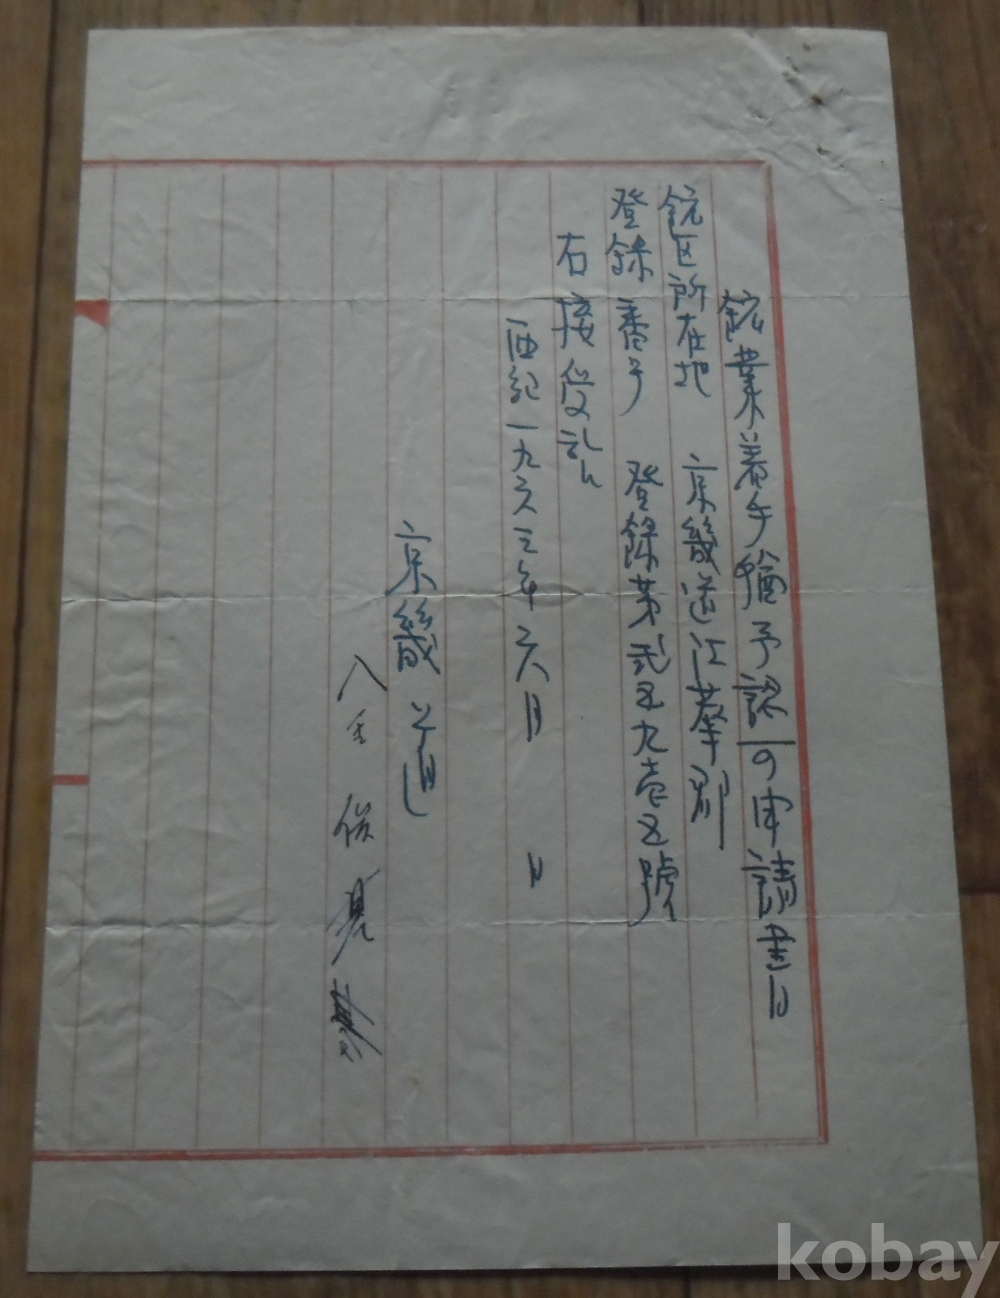 鉱業着手猶予認可申請書
鉱区所在地 京畿道江華郡
登錄番号 登錄第弐五九壱五號
右接受
西紀一九六三年六月 日
京畿道
kobay